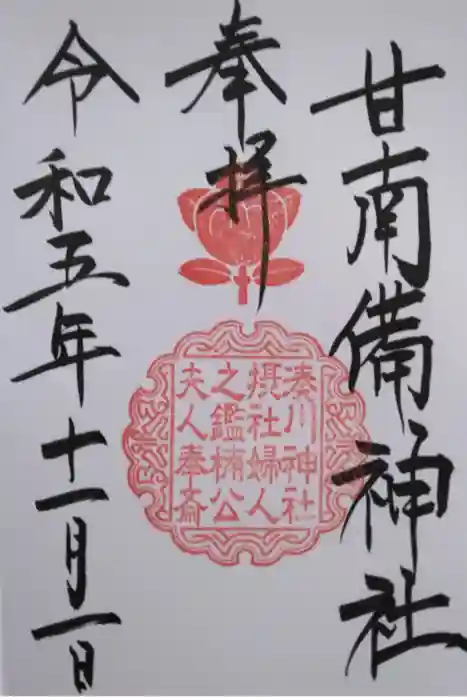 甘南備神社
奉拝
湊川神社
摂社婦人
之鑑楠公
夫人奉斎
令和五年十一月一日